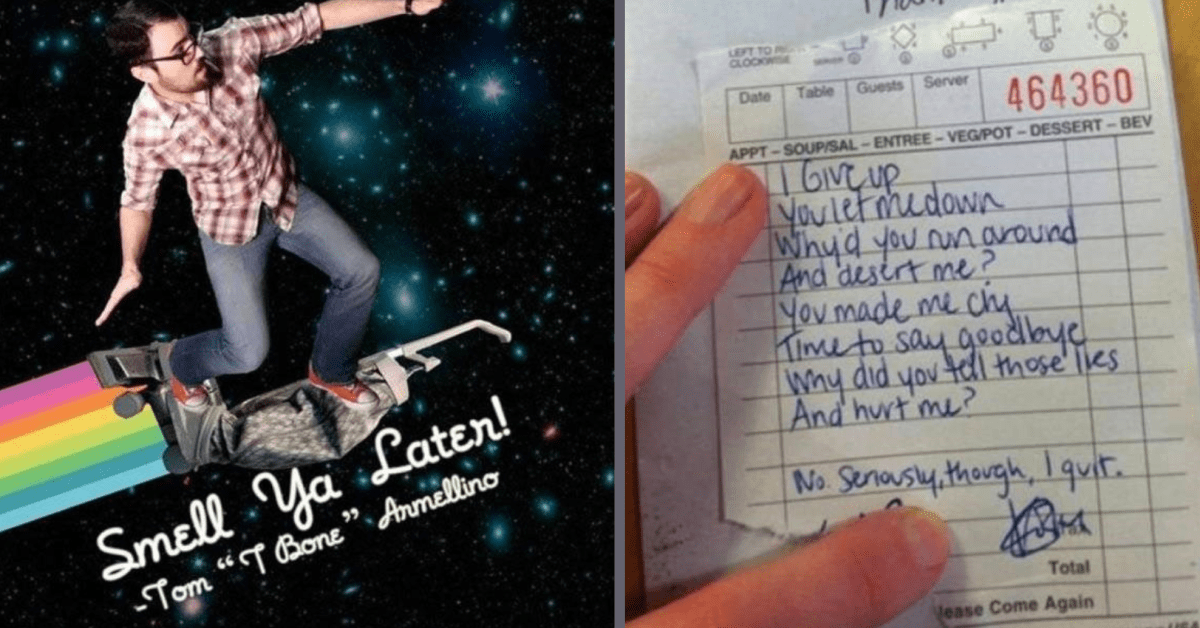 Smell Ya Later!
-Tom "T Bone" Armellino
LEFT TO
CLOCKWISE
Date Table Guests Server
464360
APPT – SOUP/SAL – ENTREE – VEG/POT – DESSERT – BEV
I Give up
You let me down
Why'd you run around
And desert me?
You made me cry
Time to say goodbye
Why did you tell those lies
And hurt me?
No. Seriously, though, I quit.
Total
lease Come Again